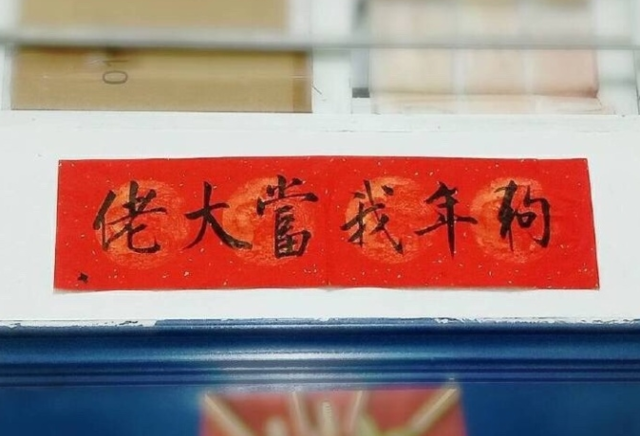 狗年我當大佬